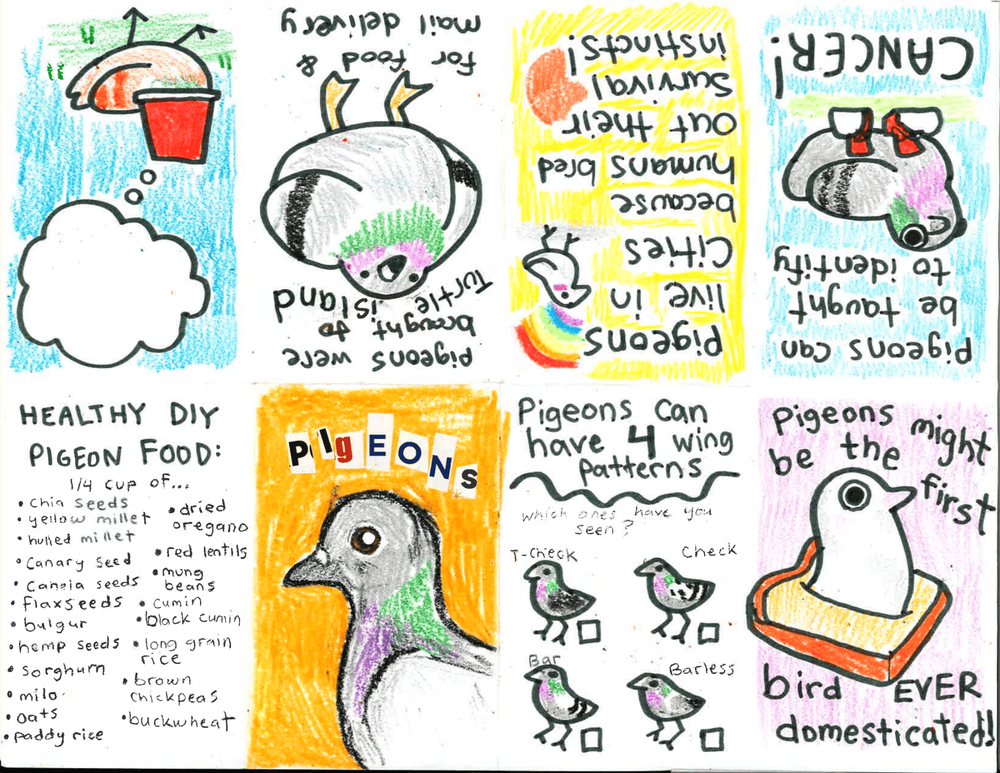 PIgEONS
Pigeons can
have 4 wing
patterns
which ones have you
seen?
T-check
Check
Bar
Barless
pigeons might
be the
first
bird EVER
domesticated!
pigeons can
be taught
to identify
CANCER!
Pigeons
live in
Cities
because
humans bred
out their
survival
instincts!
pigeons were
brought to
Turtle island
for food &
mail delivery
HEALTHY DIY
PIGEON FOOD:
1/4 cup of...
• Chia seeds
• yellow millet
• hulled millet
• Canary seed
• Canola seeds
• flaxseeds
• bulgur
• hemp seeds
• sorghum
• milo
• oats
• paddy rice
• dried
oregano
• red lentils
• mung
beans
• cumin
• black cumin
• long grain
rice
• brown
chickpeas
• buckwheat